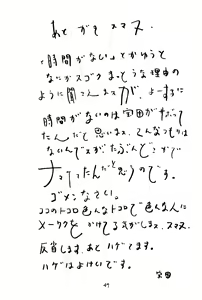 あとがき スマヌ.
「時間がない」とかゆうと
なにかスゴクまっとうな理由の
ように聞こえますが、よーするに
時間がないのは宮田がだって
たんだと思います。こんなつもりは
ないんですがたぶんどこかで
ナマケてたんだと思うのです。
ゴメンなさい。
ココのトコロ色んなトコロで色んな人に
メーワクをかけてる気がしるっス。スマヌ.
反省します。あとハゲてます。
ハゲはよけいです。
宮田